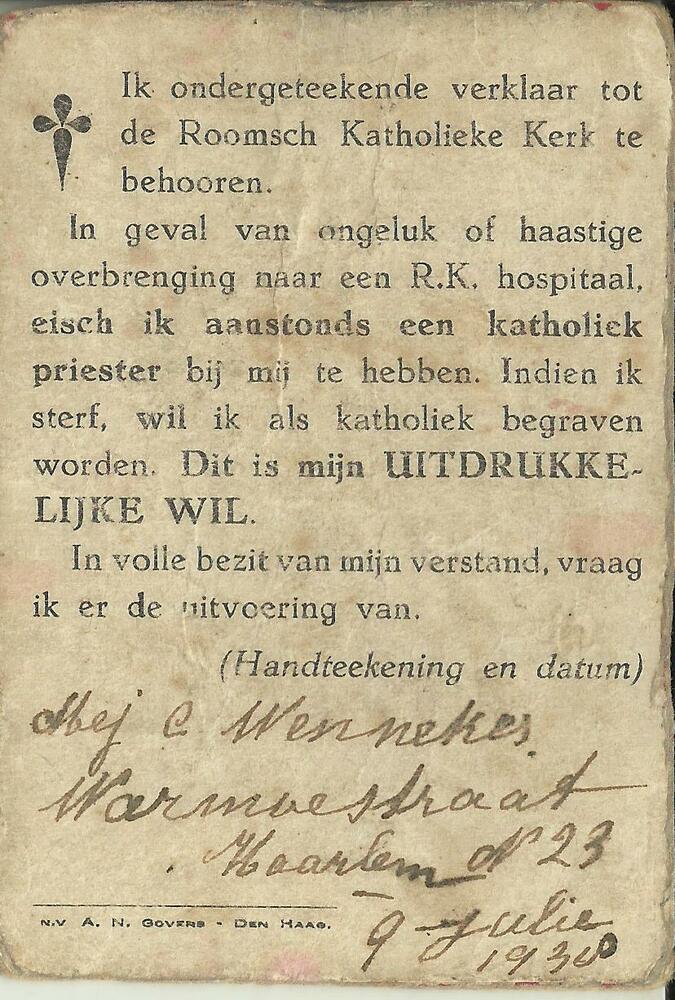 Ik ondergeteekende verklaar tot
de Roomsch Katholieke Kerk te
behooren.
In geval van ongeluk of haastige
overbrenging naar een R.K. hospitaal,
eisch ik aanstonds een katholiek
priester bij mij te hebben. Indien ik
sterf, wil ik als katholiek begraven
worden. Dit is mijn UITDRUKKE-
LIJKE WIL.
In volle bezit van mijn verstand, vraag
ik er de uitvoering van.
(Handteekening en datum)
Mej C Wennekes
Warmoestraat
Haarlem No 23
N.V A. N. GOVERS - DEN HAAG.
9 Julie
1938